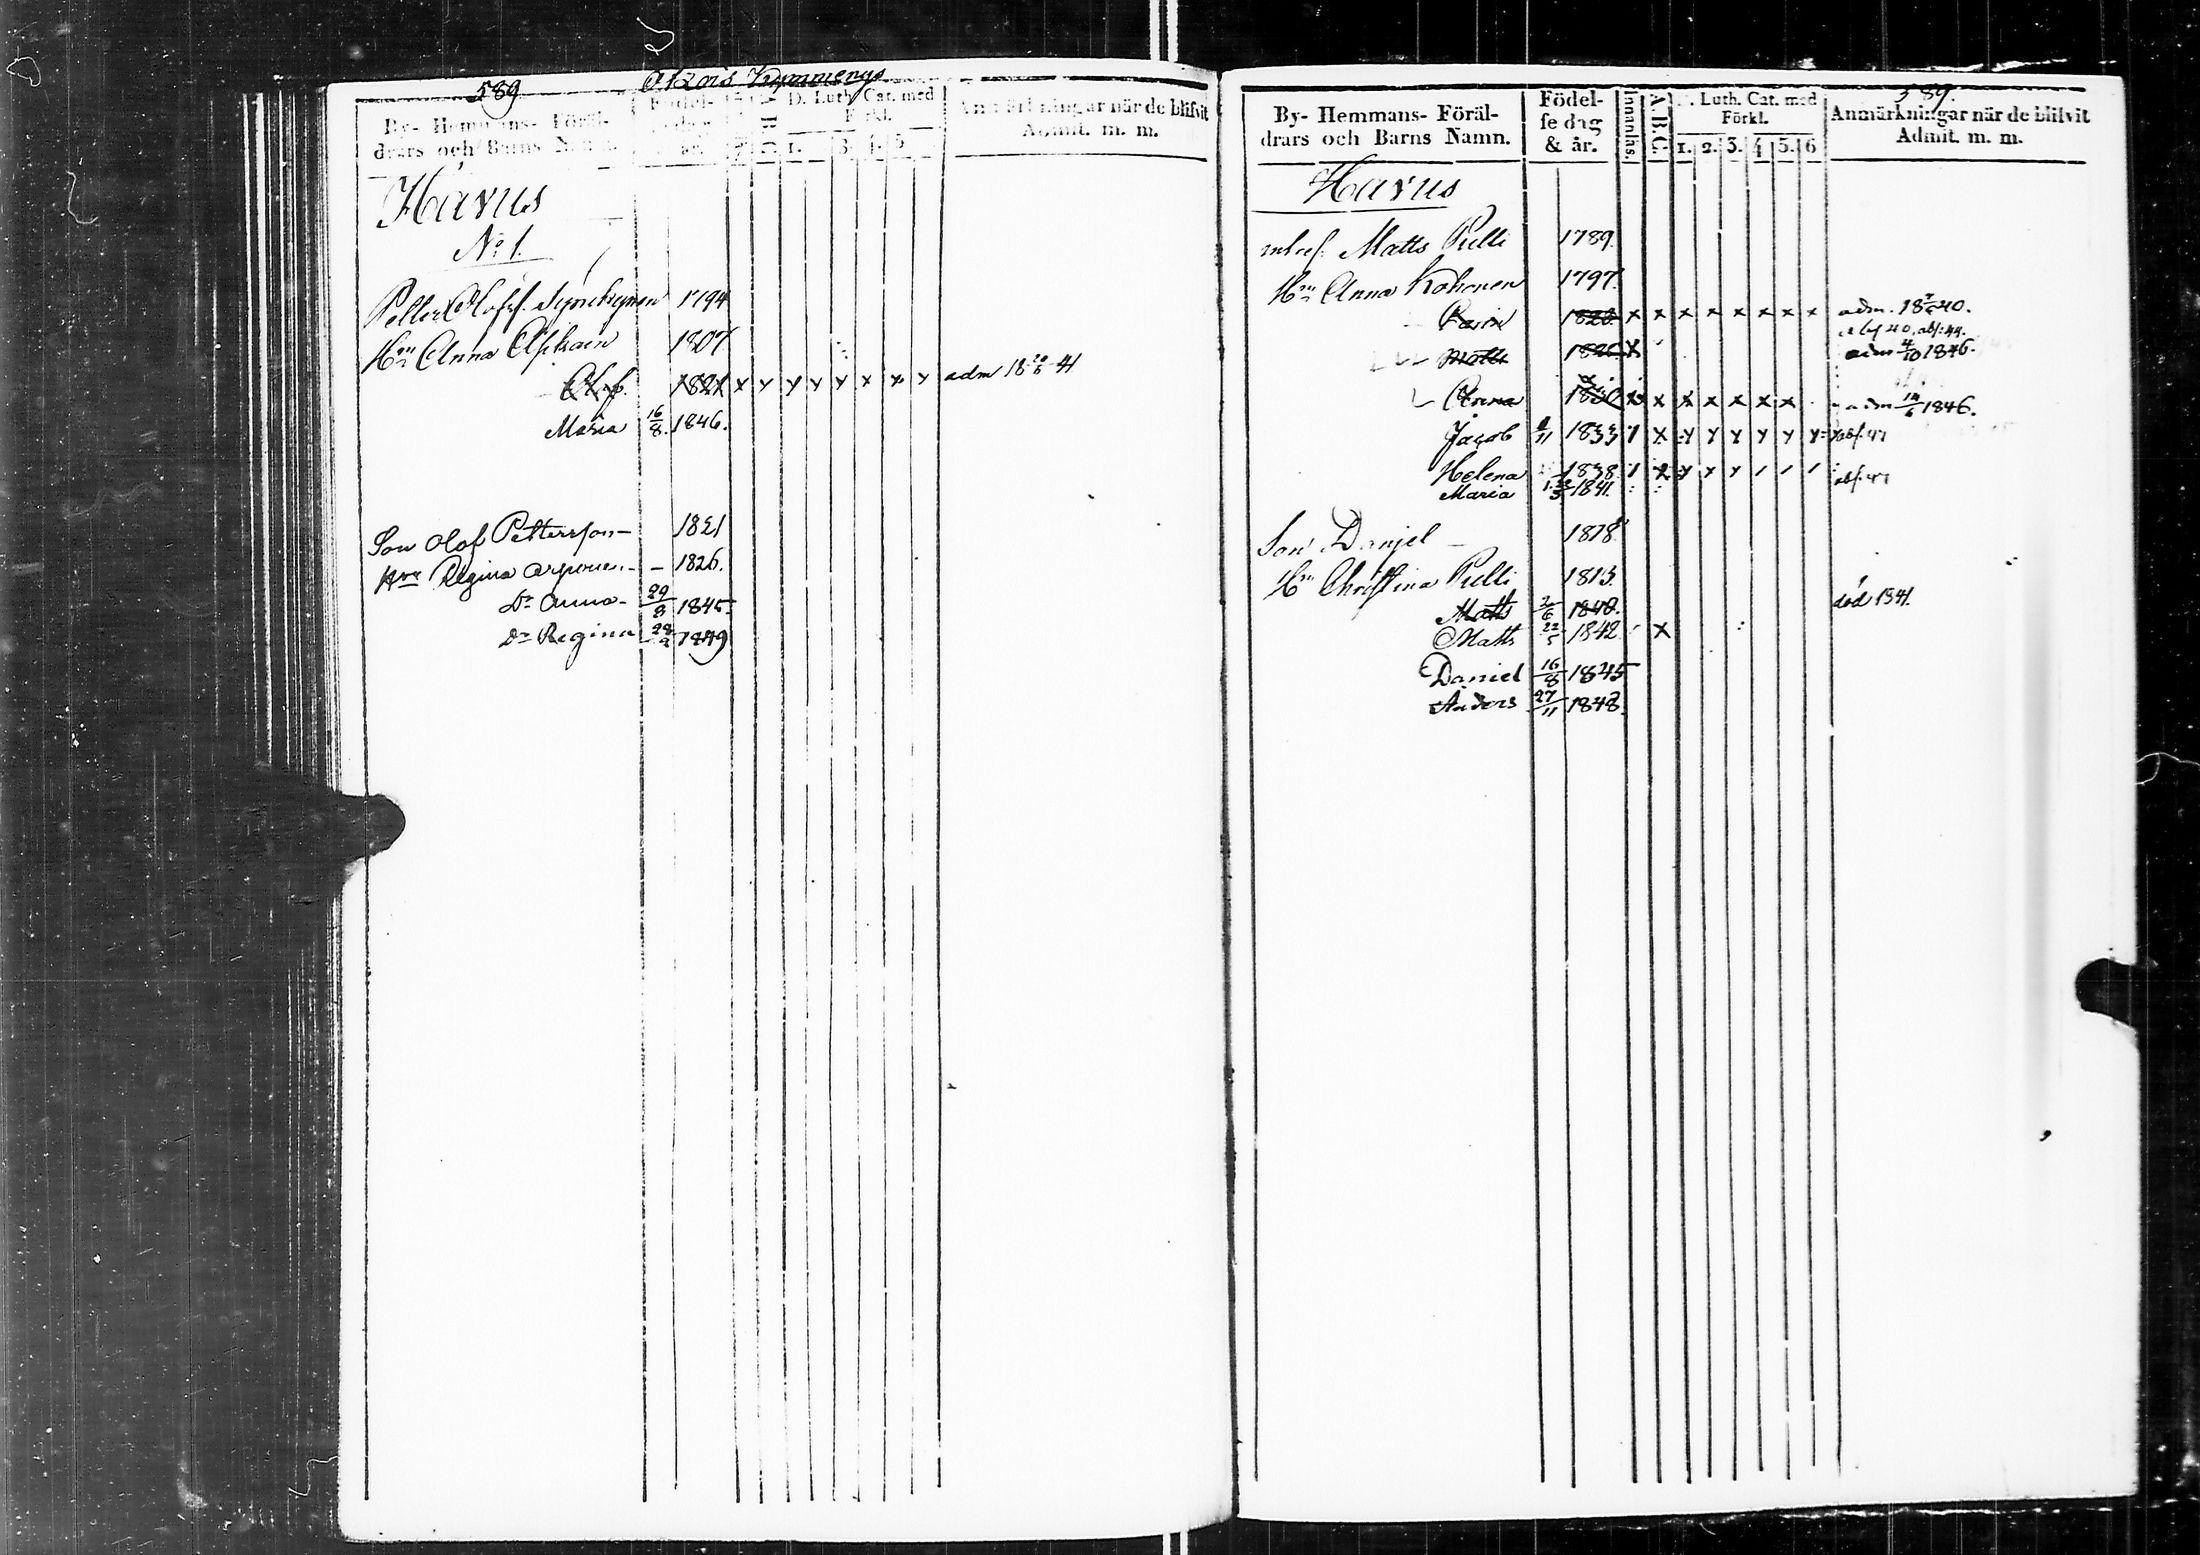 589
By- Hemmans- Föräl-
drars och Barns Namn.
D. Luth. Cat. med
Förkl.
Anmärkningar när de blifvit
Admit. m. m.
Havus
No 1.
Petter Olofss. 1794
Hru Anna 1807
Olof 1821 x y y y y x x y adm 18 41
Maria 16/8 1846.
Son Olof Pettersson 1821
Hru Regina 1826.
Dr Anna 29/8 1845
Dr Regina 1849
589.
By- Hemmans- Föräl-
drars och Barns Namn.
Födel-
se dag
& år.
Innanläs.
A.B.C.
D. Luth. Cat. med
Förkl.
1. 2. 3. 4 5. 6
Anmärkningar när de blifvit
Admit. m. m.
Havus
Matts Pulli 1789.
Hru Anna Kohonen 1797.
Carin x x x x x x x x adm. 18 40.
Matts x adm 4/10 1846.
Anna 1830 x x x x x x x adm 1846.
Jacob 1833 1 x y y y y y y abs. 47
Helena 1838 1 x y y y 1 1 1 abs. 47
Maria 1841.
Son Danjel 1818
Hru Christina Pulli 1813
Matts 1840. död 1841.
Matts 22/5 1842 x
Daniel 16/8 1845
Anders 27/11 1848.